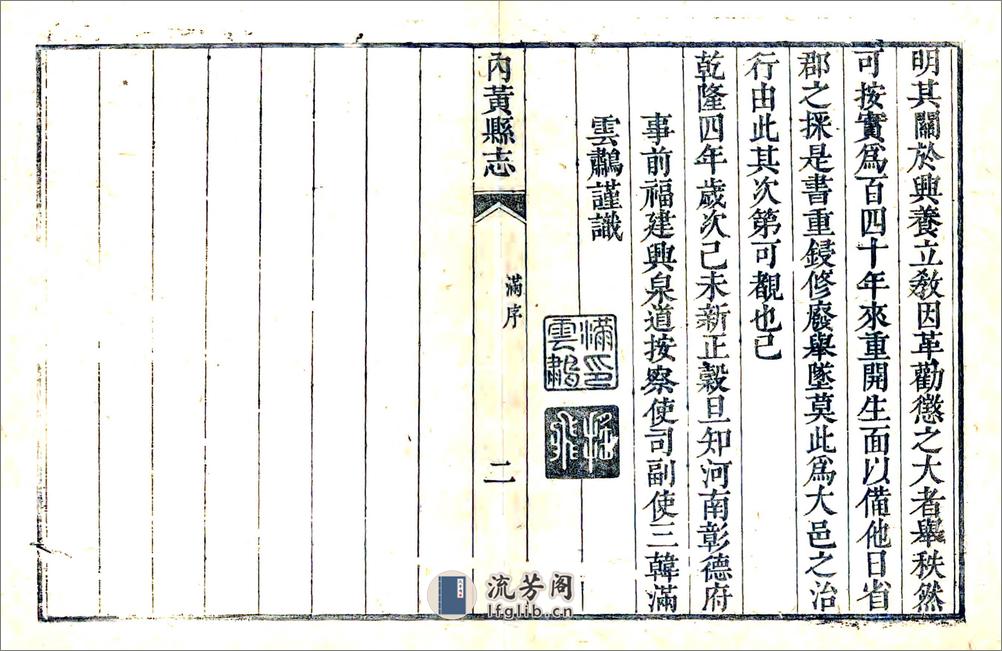 明其關於興養立教因革勸懲之大者舉秩然
可按實爲百四十年來重開生面以備他日省
郡之採是書重鋟修廢舉墜莫此爲大邑之治
行由此其次第可覩也已
乾隆四年歲次己未新正穀旦知河南彰德府
事前福建興泉道按察使司副使三韓滿
雲鷫謹識
滿印
雲鷫
內黃縣志
滿序
二
流芳阁
lfglib.cn